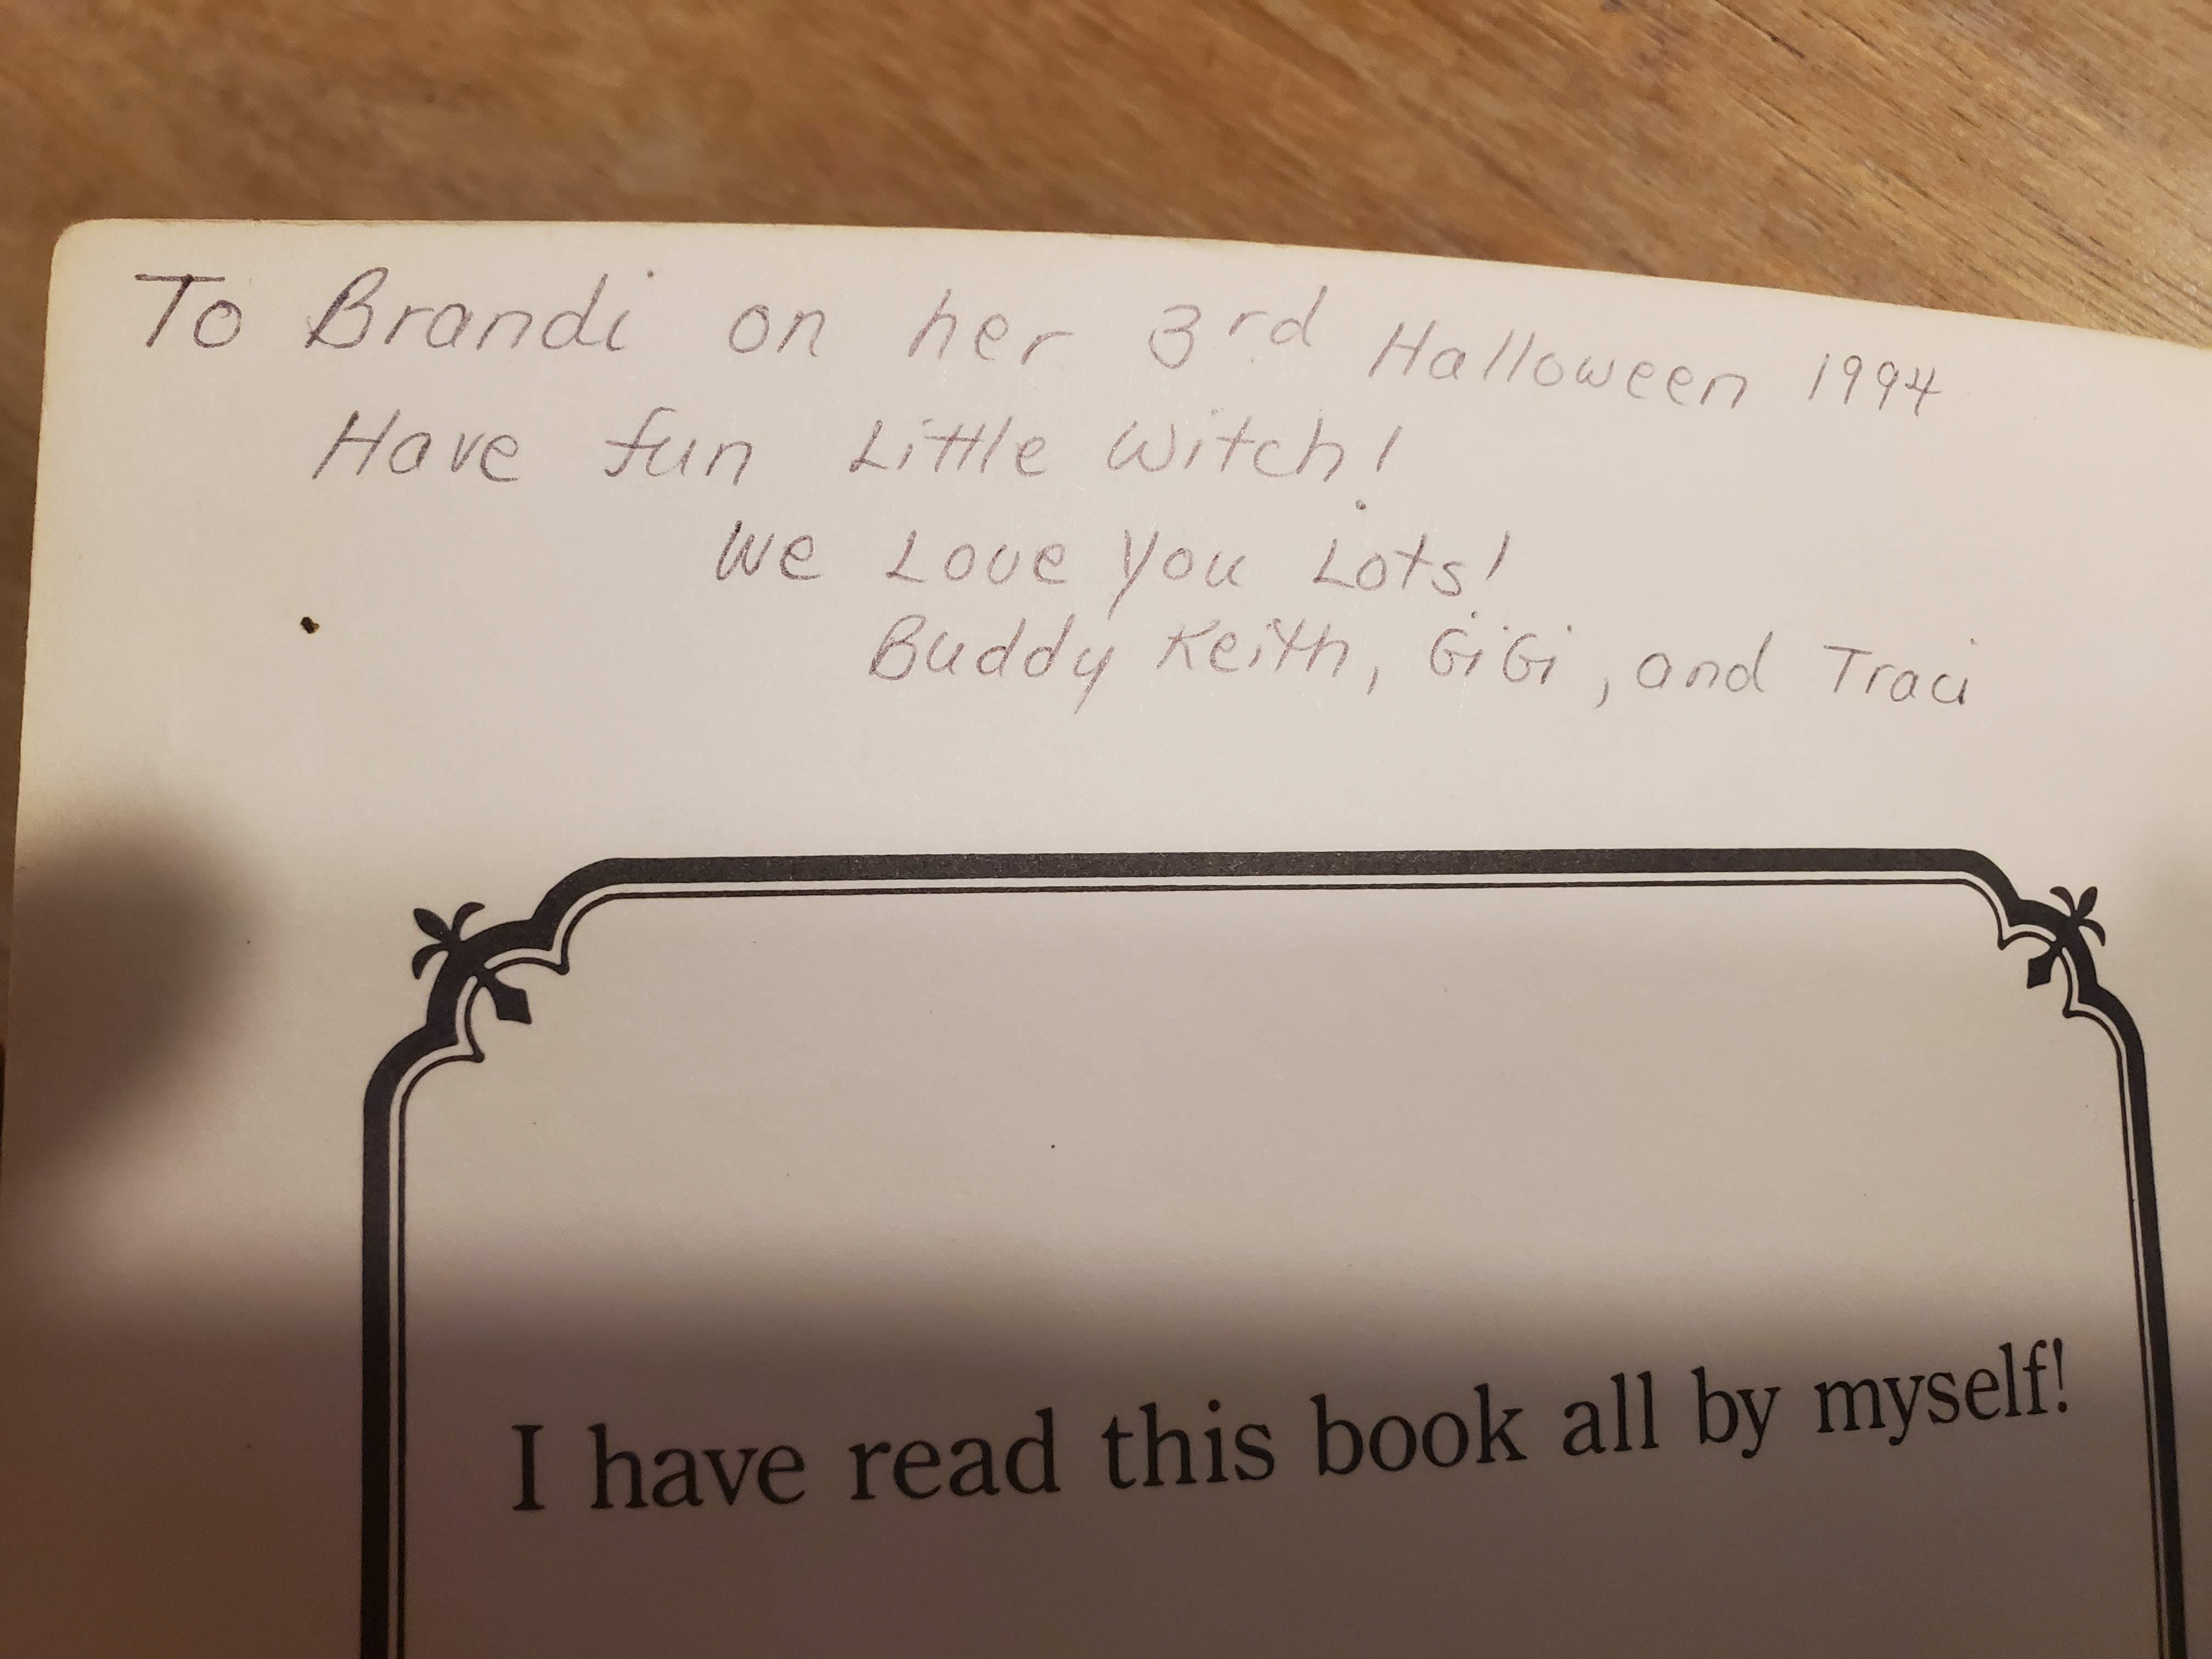 To Brandi on her 3rd Halloween 1994
Have fun Little witch!
We Love You Lots!
Buddy Keith, GiGi, and Traci
I have read this book all by myself!